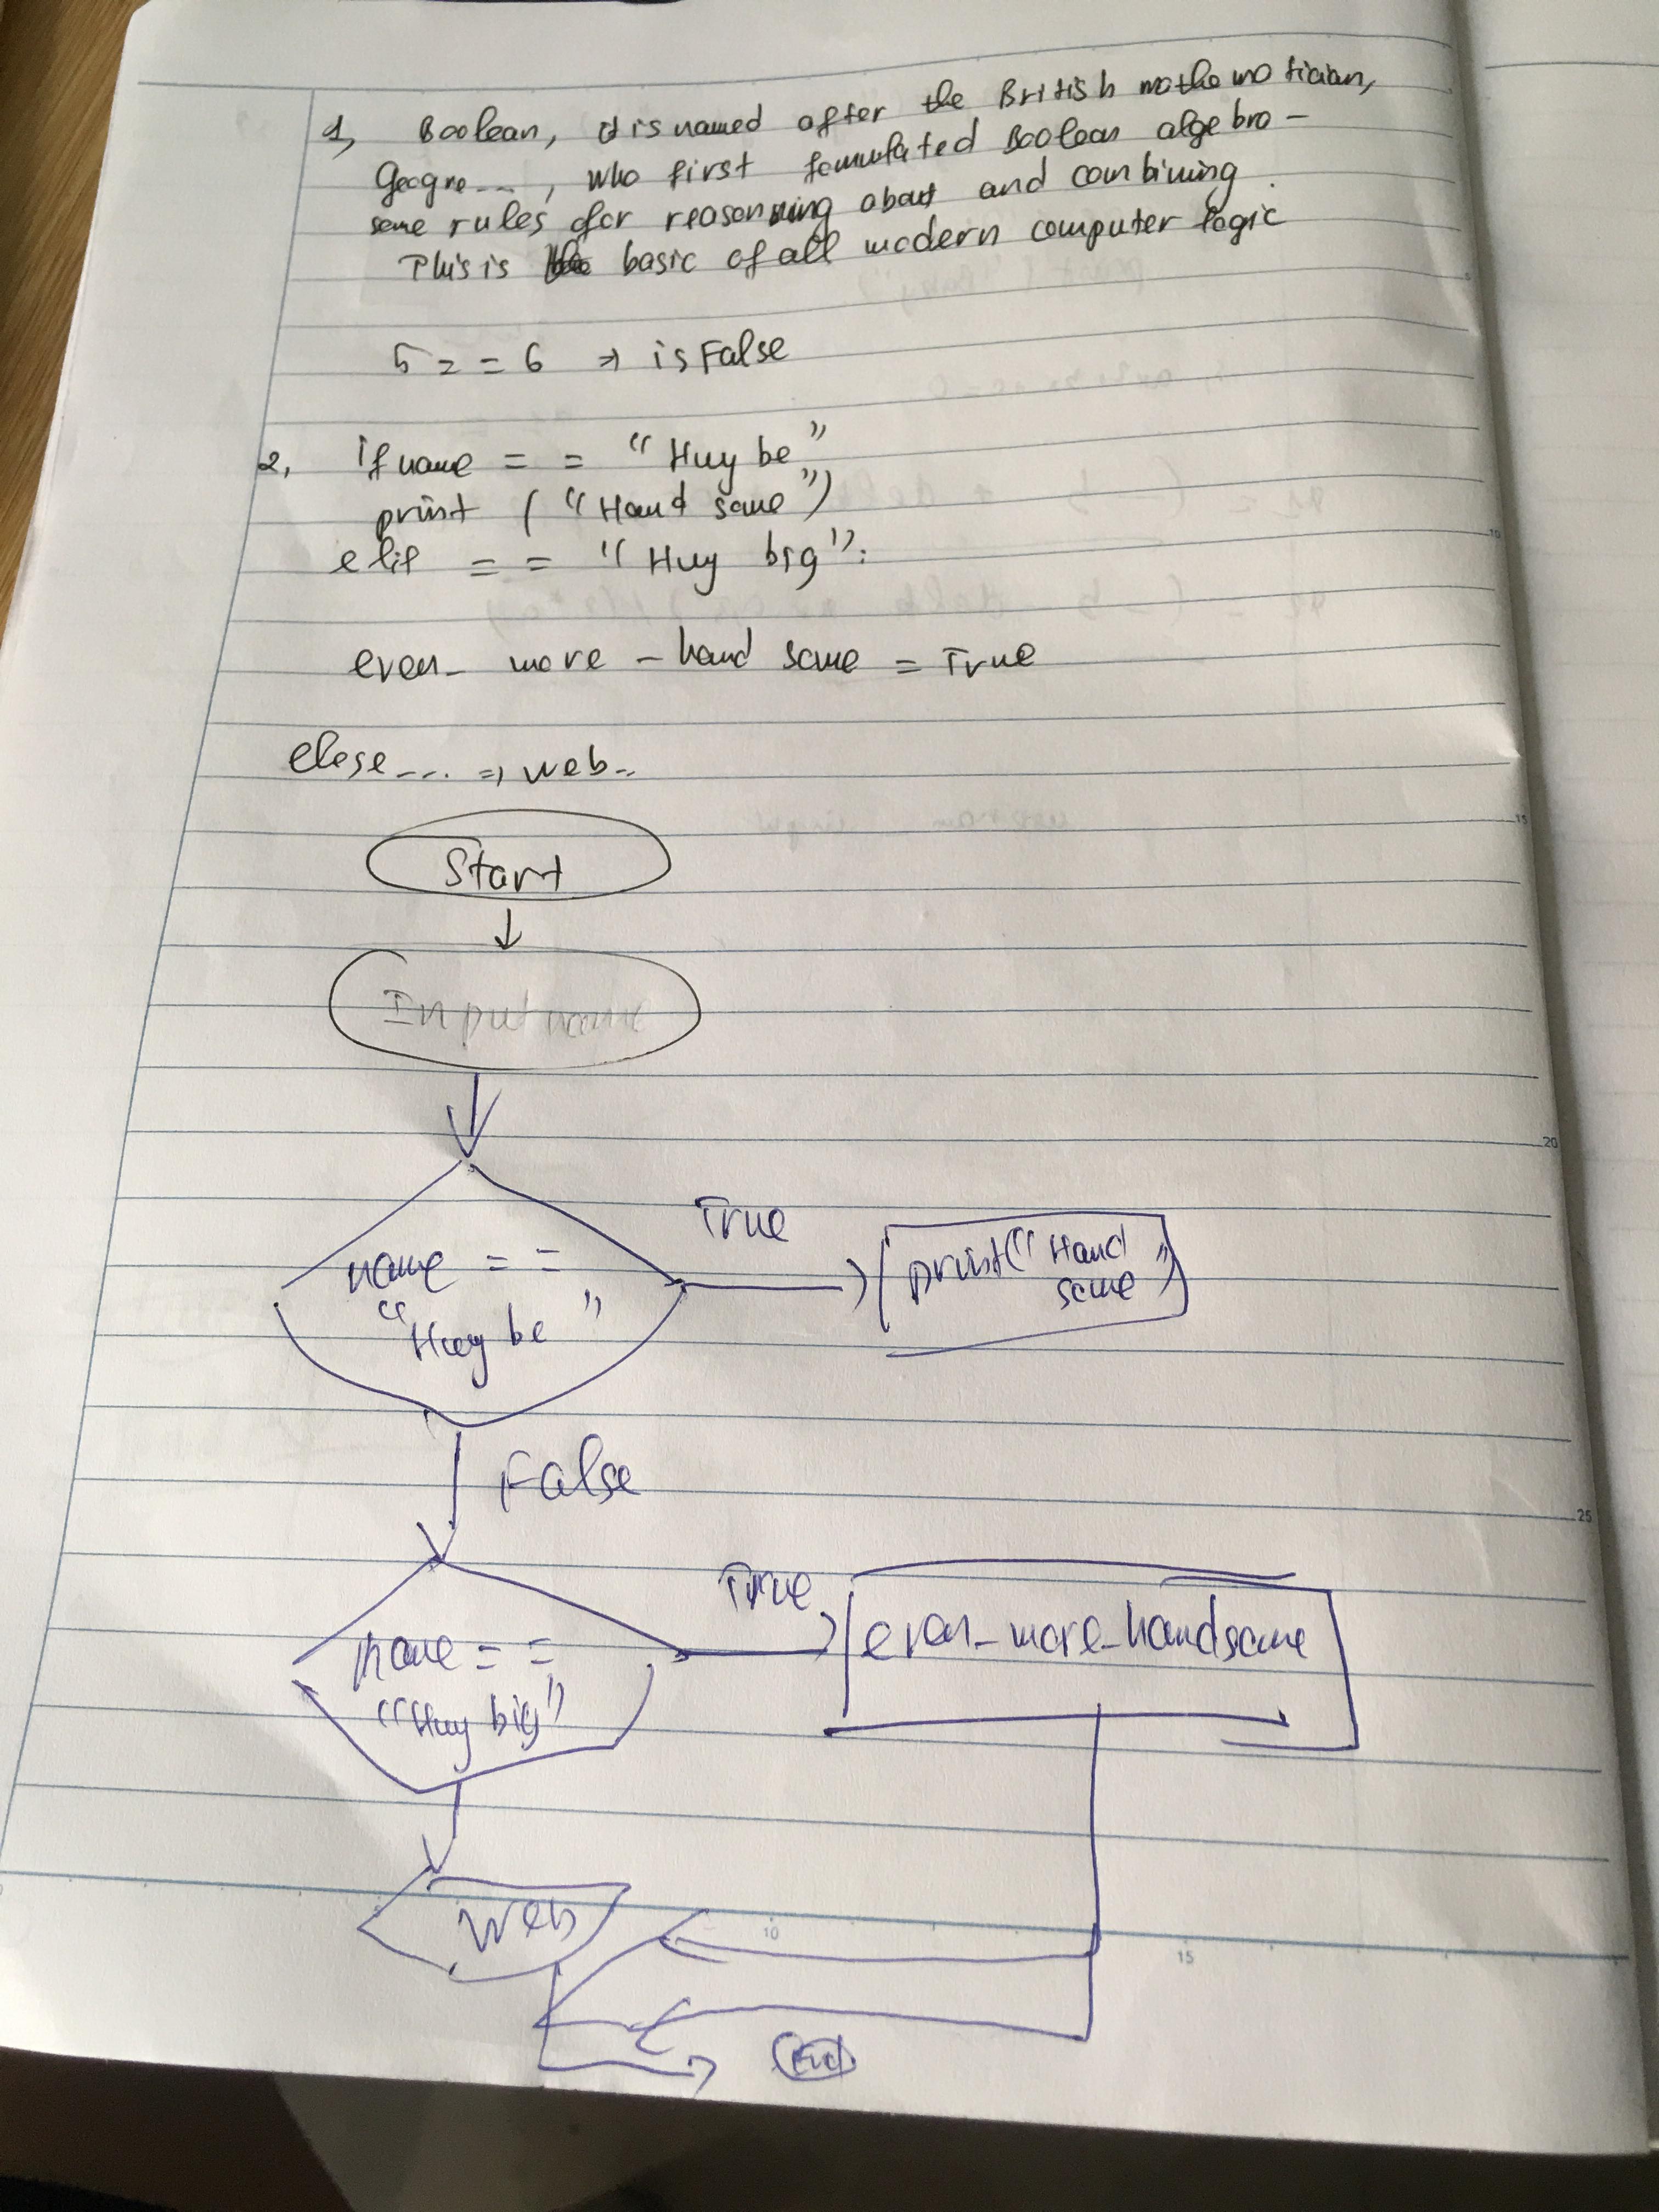 1, Boolean, it is named after the British mathematician,
Geogre..., who first fomulated Boolean algebra -
some rules for reasonning about and combining.
This is the basic of all modern computer logic
5 == 6 => is False
2, if name == "Huy be"
print ("Hand some")
elif == "Huy big":
even_ more _ hand some = True
Elese... => web..
Start
Input name
name ==
"Huy be"
True
print("Hand
some")
False
name ==
"Huy big"
True
even_more_handsome
Web
End
10
15
20
25
10
15